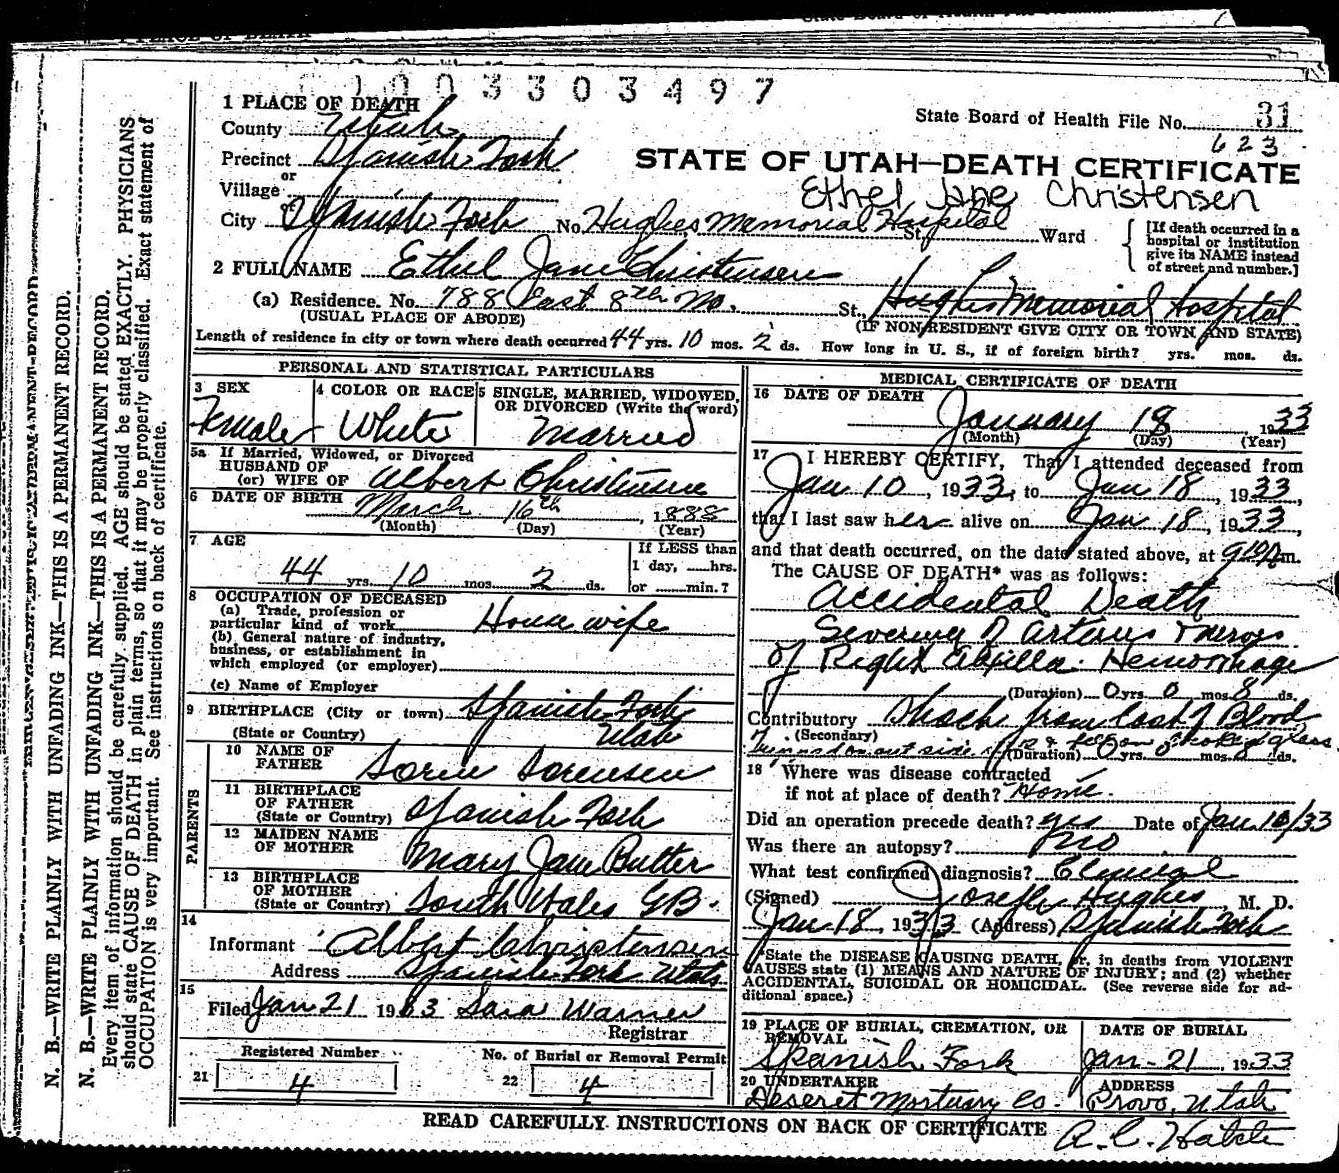 0003303497
1 PLACE OF DEATH
County Utah
State Board of Health File No. 31
623
Precinct Spanish Fork
or
Village
STATE OF UTAH—DEATH CERTIFICATE
Ethel Jane Christensen
City of Spanish Fork No. Hughes Memorial Hospital St. Ward
[If death occurred in a hospital or institution give its NAME instead of street and number.]
2 FULL NAME Ethel Jane Christensen
(a) Residence. No. 788 East 8th No. St., Hughes Memorial Hospital
(USUAL PLACE OF ABODE) (IF NON RESIDENT GIVE CITY OR TOWN AND STATE)
Length of residence in city or town where death occurred 44 yrs. 10 mos. 2 ds. How long in U. S., if of foreign birth? yrs. mos. ds.
PERSONAL AND STATISTICAL PARTICULARS
3 SEX
Female
4 COLOR OR RACE
White
5 SINGLE, MARRIED, WIDOWED, OR DIVORCED (Write the word)
Married
5a If Married, Widowed, or Divorced
HUSBAND OF
(or) WIFE OF Albert Christensen
6 DATE OF BIRTH March 16th, 1888
(Month) (Day) (Year)
7 AGE
44 yrs. 10 mos. 2 ds.
If LESS than
1 day, ....hrs.
or ......min.?
8 OCCUPATION OF DECEASED
(a) Trade, profession or
particular kind of work House wife
(b) General nature of industry,
business, or establishment in
which employed (or employer)
(c) Name of Employer
9 BIRTHPLACE (City or town) Spanish Fork
(State or Country) Utah
PARENTS
10 NAME OF
FATHER Soren Sorensen
11 BIRTHPLACE
OF FATHER
(State or Country) Spanish Fork
12 MAIDEN NAME
OF MOTHER Mary Jane Butter
13 BIRTHPLACE
OF MOTHER
(State or Country) South Wales GB.
14
Informant Albert Christensen
Address Spanish Fork Utah
15
Filed Jan 21 1933 Sara Warner
Registrar
Registered Number
21 4
No. of Burial or Removal Permit
22 4
MEDICAL CERTIFICATE OF DEATH
16 DATE OF DEATH
January 18, 1933
(Month) (Day) (Year)
17 I HEREBY CERTIFY, That I attended deceased from
Jan 10, 1933, to Jan 18, 1933,
that I last saw her alive on Jan 18, 1933,
and that death occurred, on the date stated above, at m.
The CAUSE OF DEATH* was as follows:
Accidental Death
Severing of Arteries
of Right Axilla. Hemorrhage
(Duration) 0 yrs. 0 mos. 8 ds.
Contributory Shock from Loss of Blood
(Secondary)
(Duration) 0 yrs. 0 mos. 8 ds.
18 Where was disease contracted
if not at place of death? Home.
Did an operation precede death? yes Date of Jan. 10/33
Was there an autopsy? no
What test confirmed diagnosis? Clinical
(Signed) Joseph Hughes, M. D.
Jan 18, 1933 (Address) Spanish Fork
*State the DISEASE CAUSING DEATH, or, in deaths from VIOLENT
CAUSES state (1) MEANS AND NATURE OF INJURY; and (2) whether
ACCIDENTAL, SUICIDAL OR HOMICIDAL. (See reverse side for ad-
ditional space.)
19 PLACE OF BURIAL, CREMATION, OR
REMOVAL
Spanish Fork
DATE OF BURIAL
Jan - 21, 1933
20 UNDERTAKER
Deseret Mortuary Co.
ADDRESS
Provo, Utah
READ CAREFULLY INSTRUCTIONS ON BACK OF CERTIFICATE
N. B.—WRITE PLAINLY WITH UNFADING INK—THIS IS A PERMANENT RECORD.
N. B.—WRITE PLAINLY WITH UNFADING INK—THIS IS A PERMANENT RECORD.
Every item of information should be carefully supplied. AGE should be stated EXACTLY. PHYSICIANS
should state CAUSE OF DEATH in plain terms, so that it may be properly classified. Exact statement of
OCCUPATION is very important. See instructions on back of certificate.